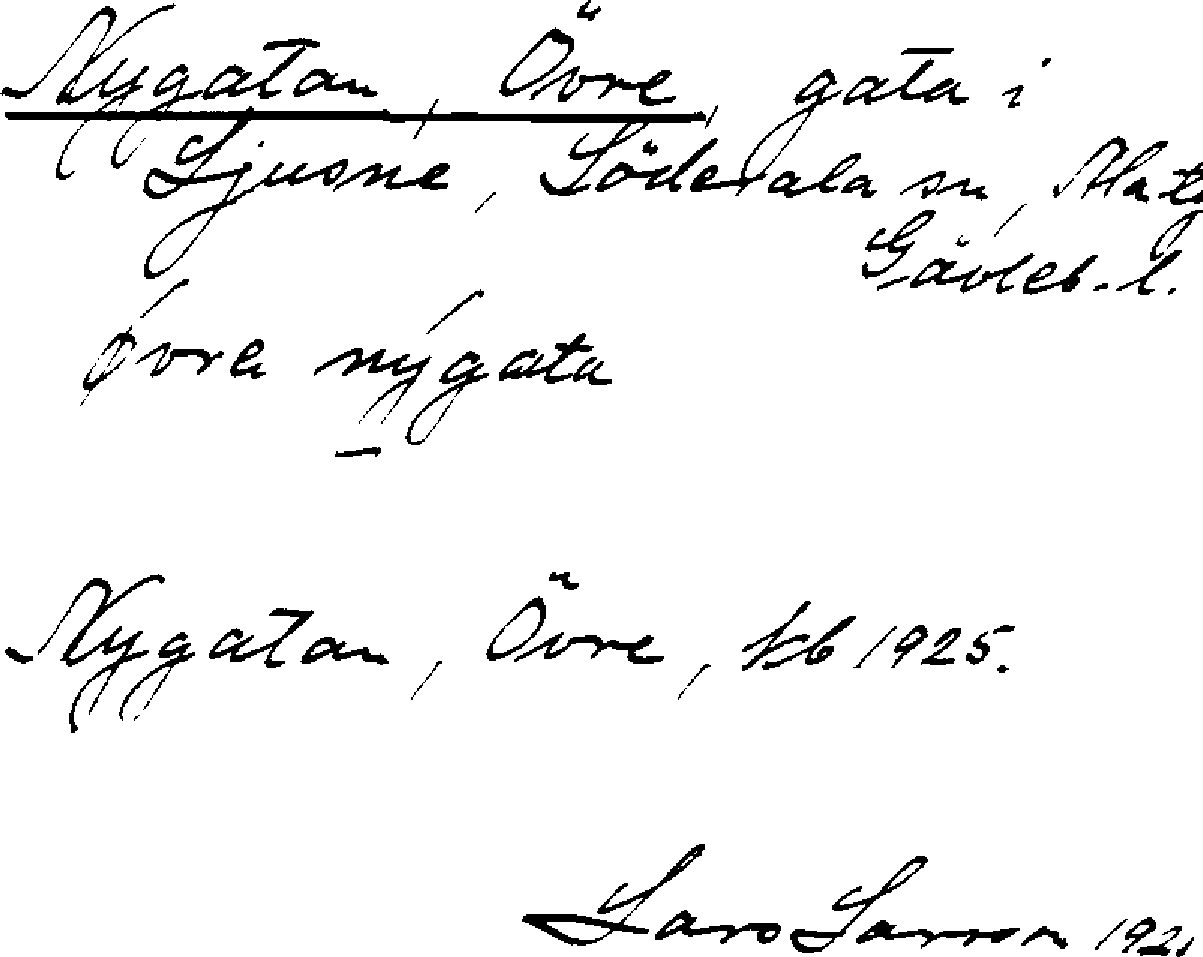 Nygatan, Övre, gata i
Ljusne, Söderala sn, Ala tg
Gävleb. l.
øvra nýgata
Nygatan, Övre, kb 1925.
Lars Larsson